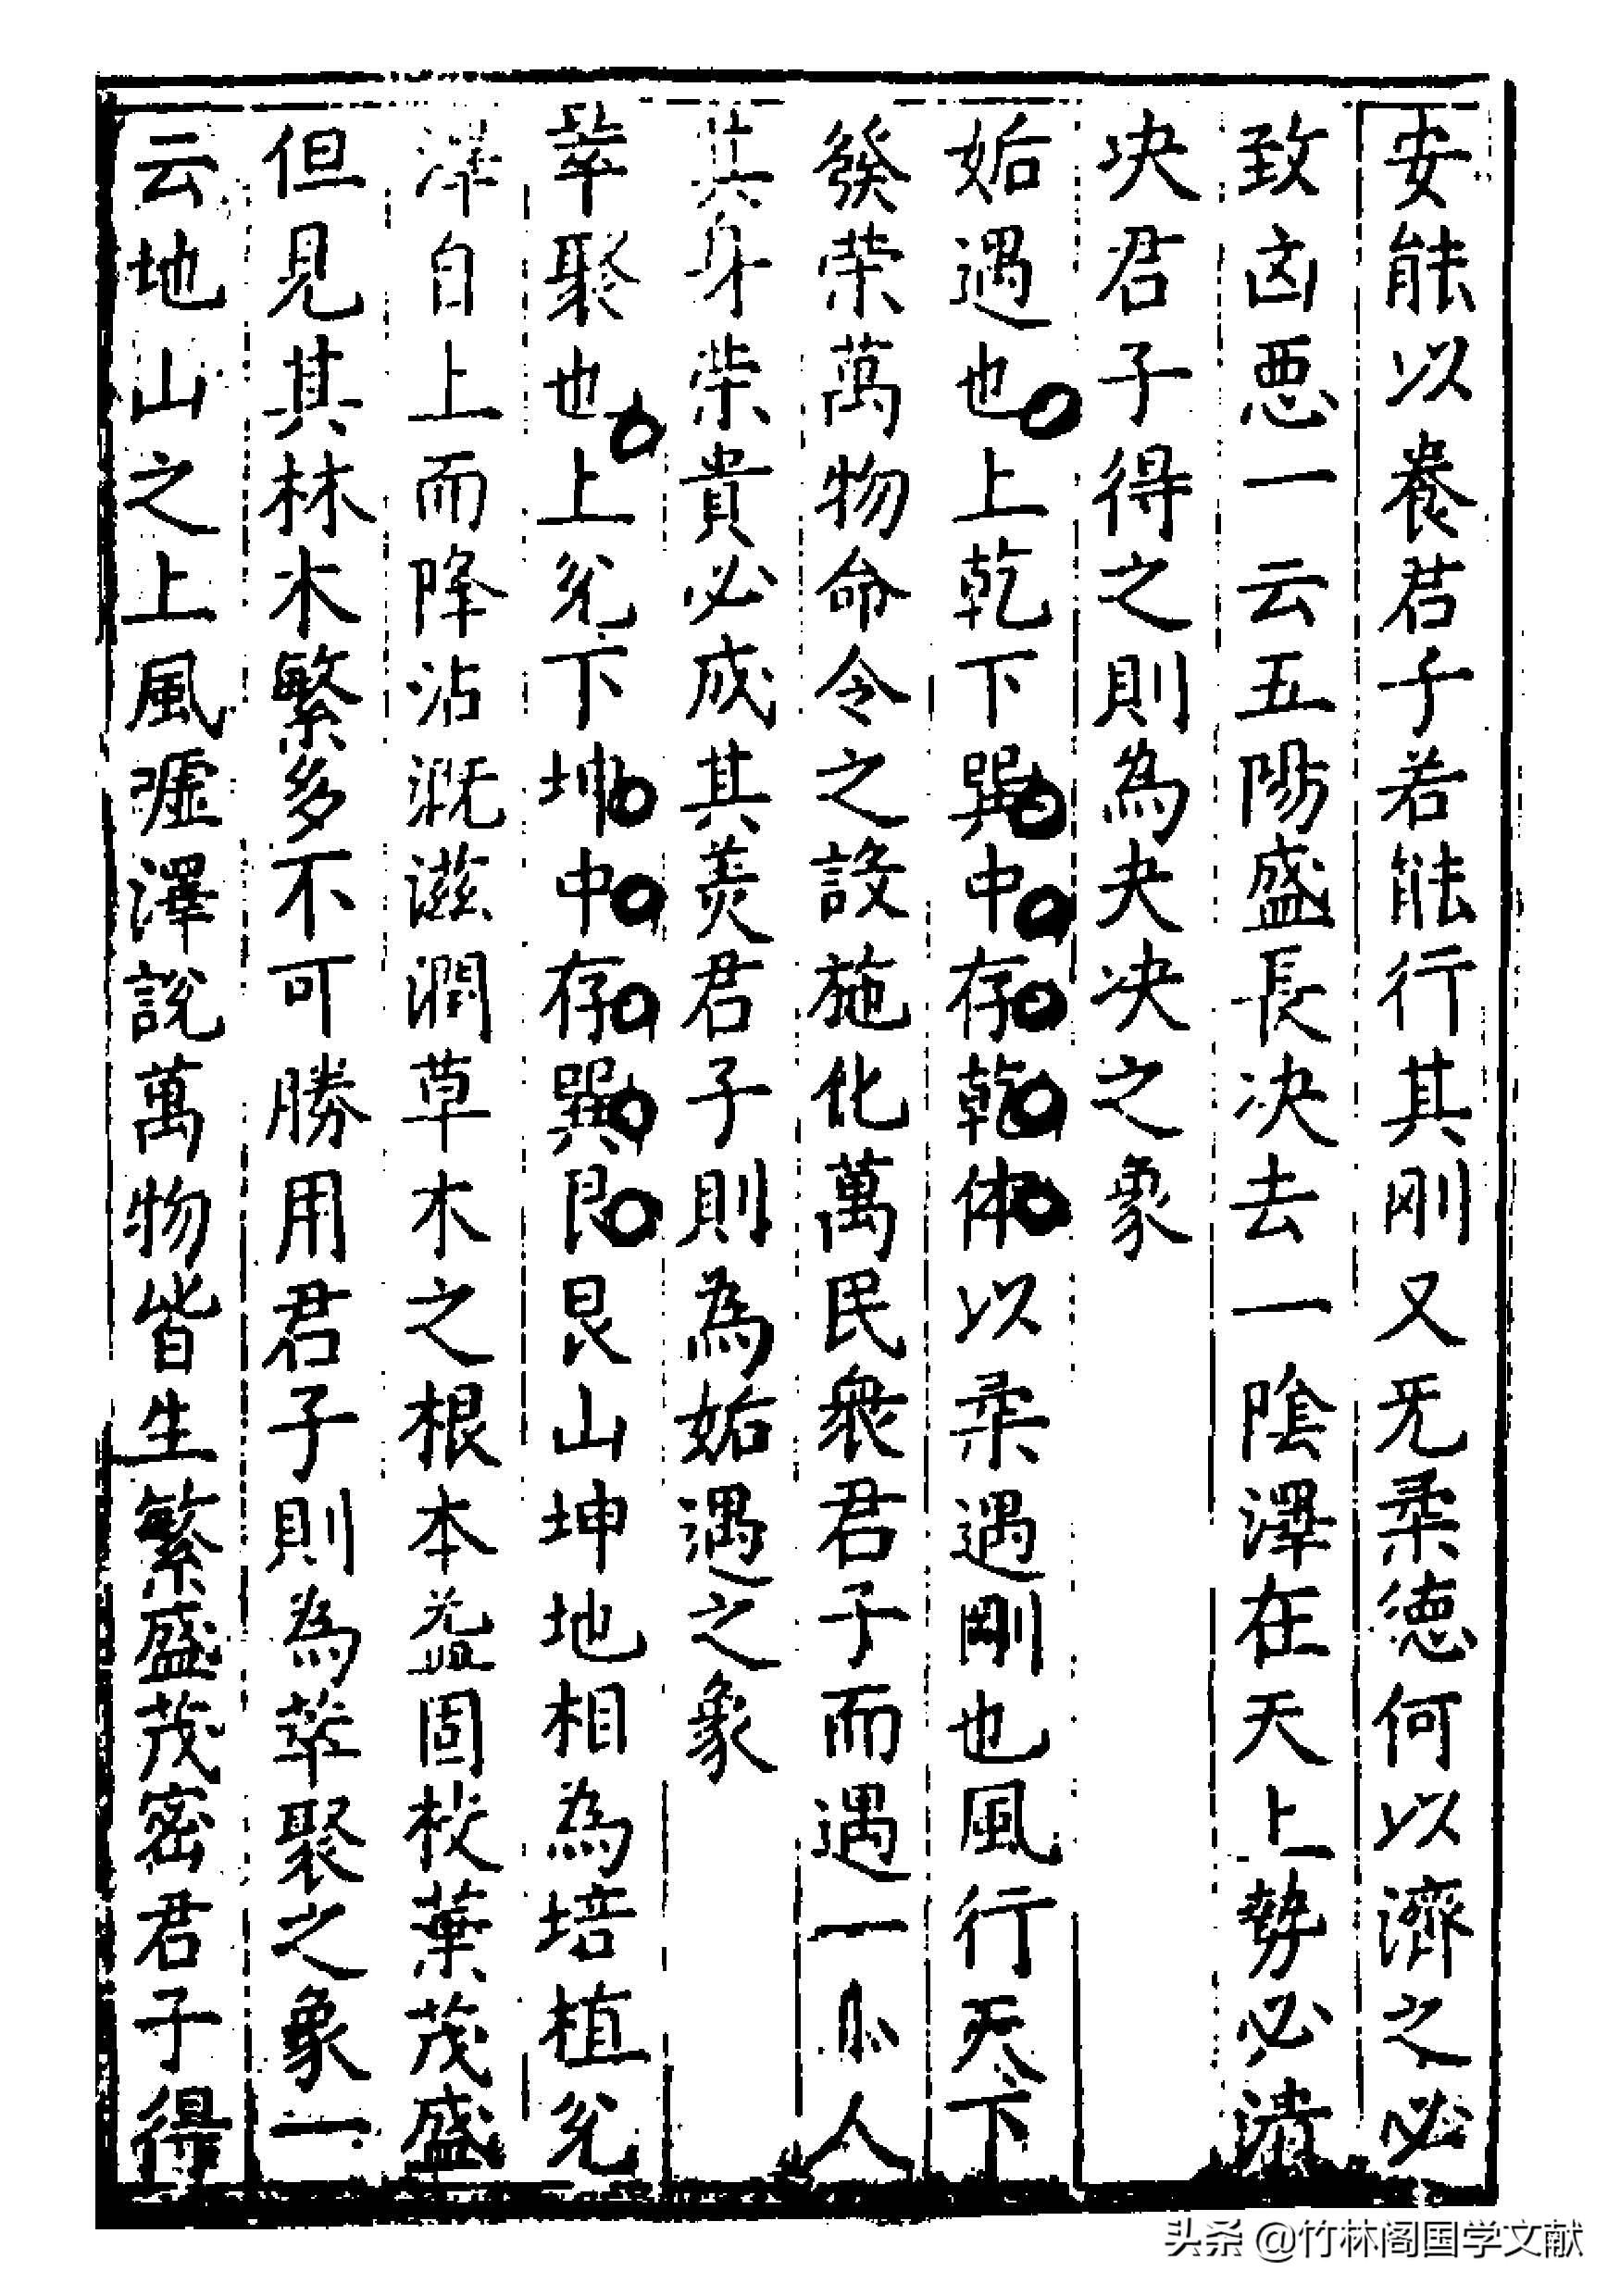 安能以養君子若能行其剛又旡柔德何以濟之必
致凶惡一云五陽盛長决去一陰澤在天上勢必潰
决君子得之則為夬决之象
姤遇也上乾下巽中存乾体以柔遇剛也風行天下
發荣萬物命令之設施化萬民衆君子而遇一小人
其身荣貴必成其美君子則為姤遇之象
萃聚也上兊下坤中存巽艮艮山坤地相為培植兊
澤自上而降沾溉滋潤草木之根本益固枝葉茂盛
但見其林木繁多不可勝用君子則為萃聚之象一
云地山之上風噓澤説萬物皆生繁盛茂密君子得
头条 @竹林阁国学文献